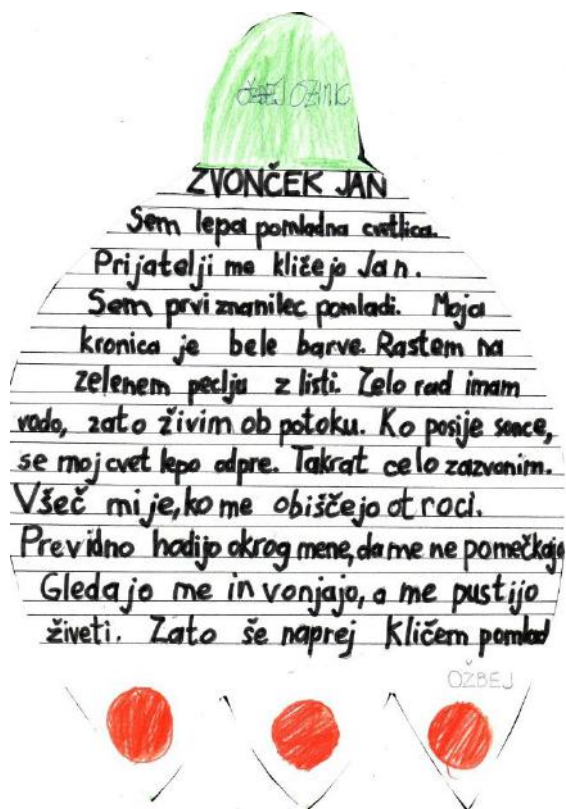 OŽBEJ OZIMIC
ZVONČEK JAN
Sem lepa pomladna cvetlica.
Prijatelji me kličejo Jan.
Sem prvi znanilec pomladi. Moja
kronica je bele barve. Rastem na
zelenem peclju z listi. Zelo rad imam
vodo, zato živim ob potoku. Ko posije sonce,
se moj cvet lepo odpre. Takrat celo zazvonim.
Všeč mi je, ko me obiščejo otroci.
Previdno hodijo okrog mene, da me ne pomečkajo
Gledajo me in vonjajo, a me pustijo
živeti. Zato še naprej kličem pomlad
OŽBEJ